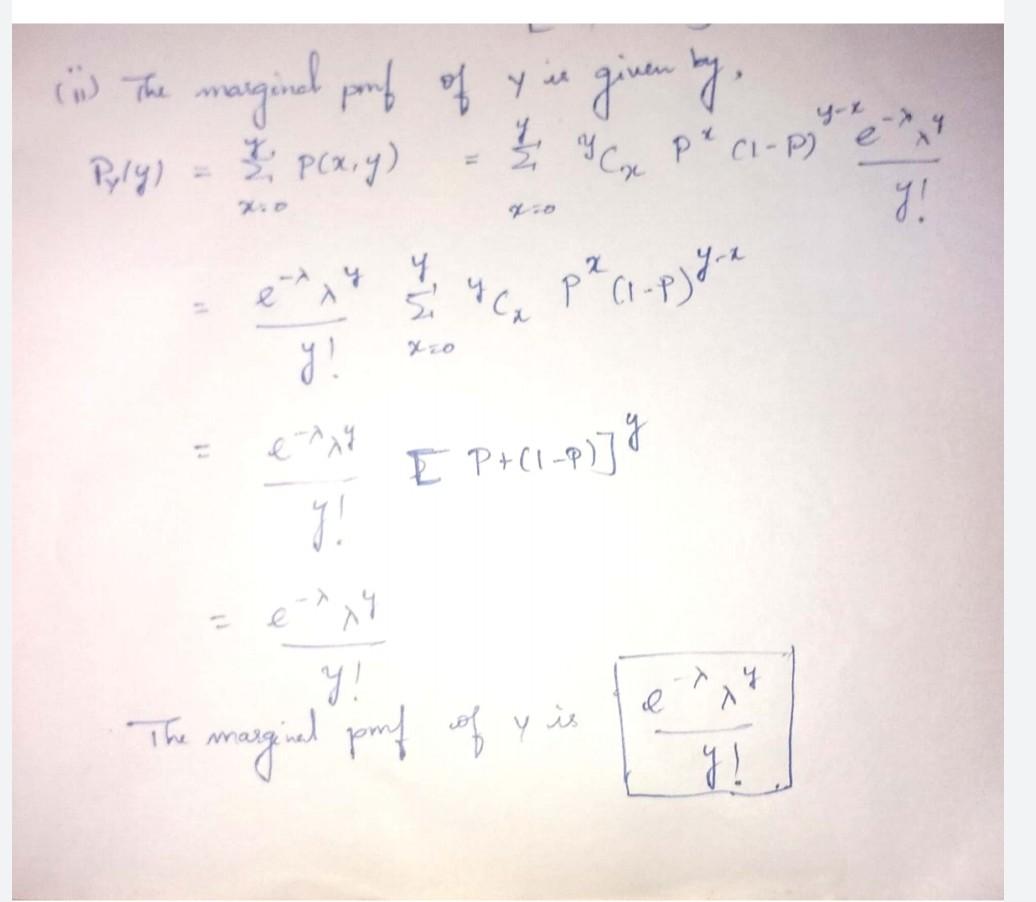 (ii) The marginal pmf of Y is given by,
P_Y(y) = Σ_{x=0}^{y} P(x,y) = Σ_{x=0}^{y} ^yC_x P^x (1-P)^{y-x} \frac{e^{-λ} λ^y}{y!}
= \frac{e^{-λ} λ^y}{y!} Σ_{x=0}^{y} ^yC_x P^x (1-P)^{y-x}
= \frac{e^{-λ} λ^y}{y!} [P+(1-P)]^y
= \frac{e^{-λ} λ^y}{y!}
The marginal pmf of Y is \frac{e^{-λ} λ^y}{y!}